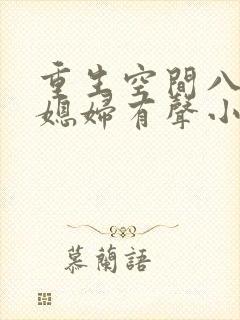 重生空間八
媳婦有聲小
慕蘭語